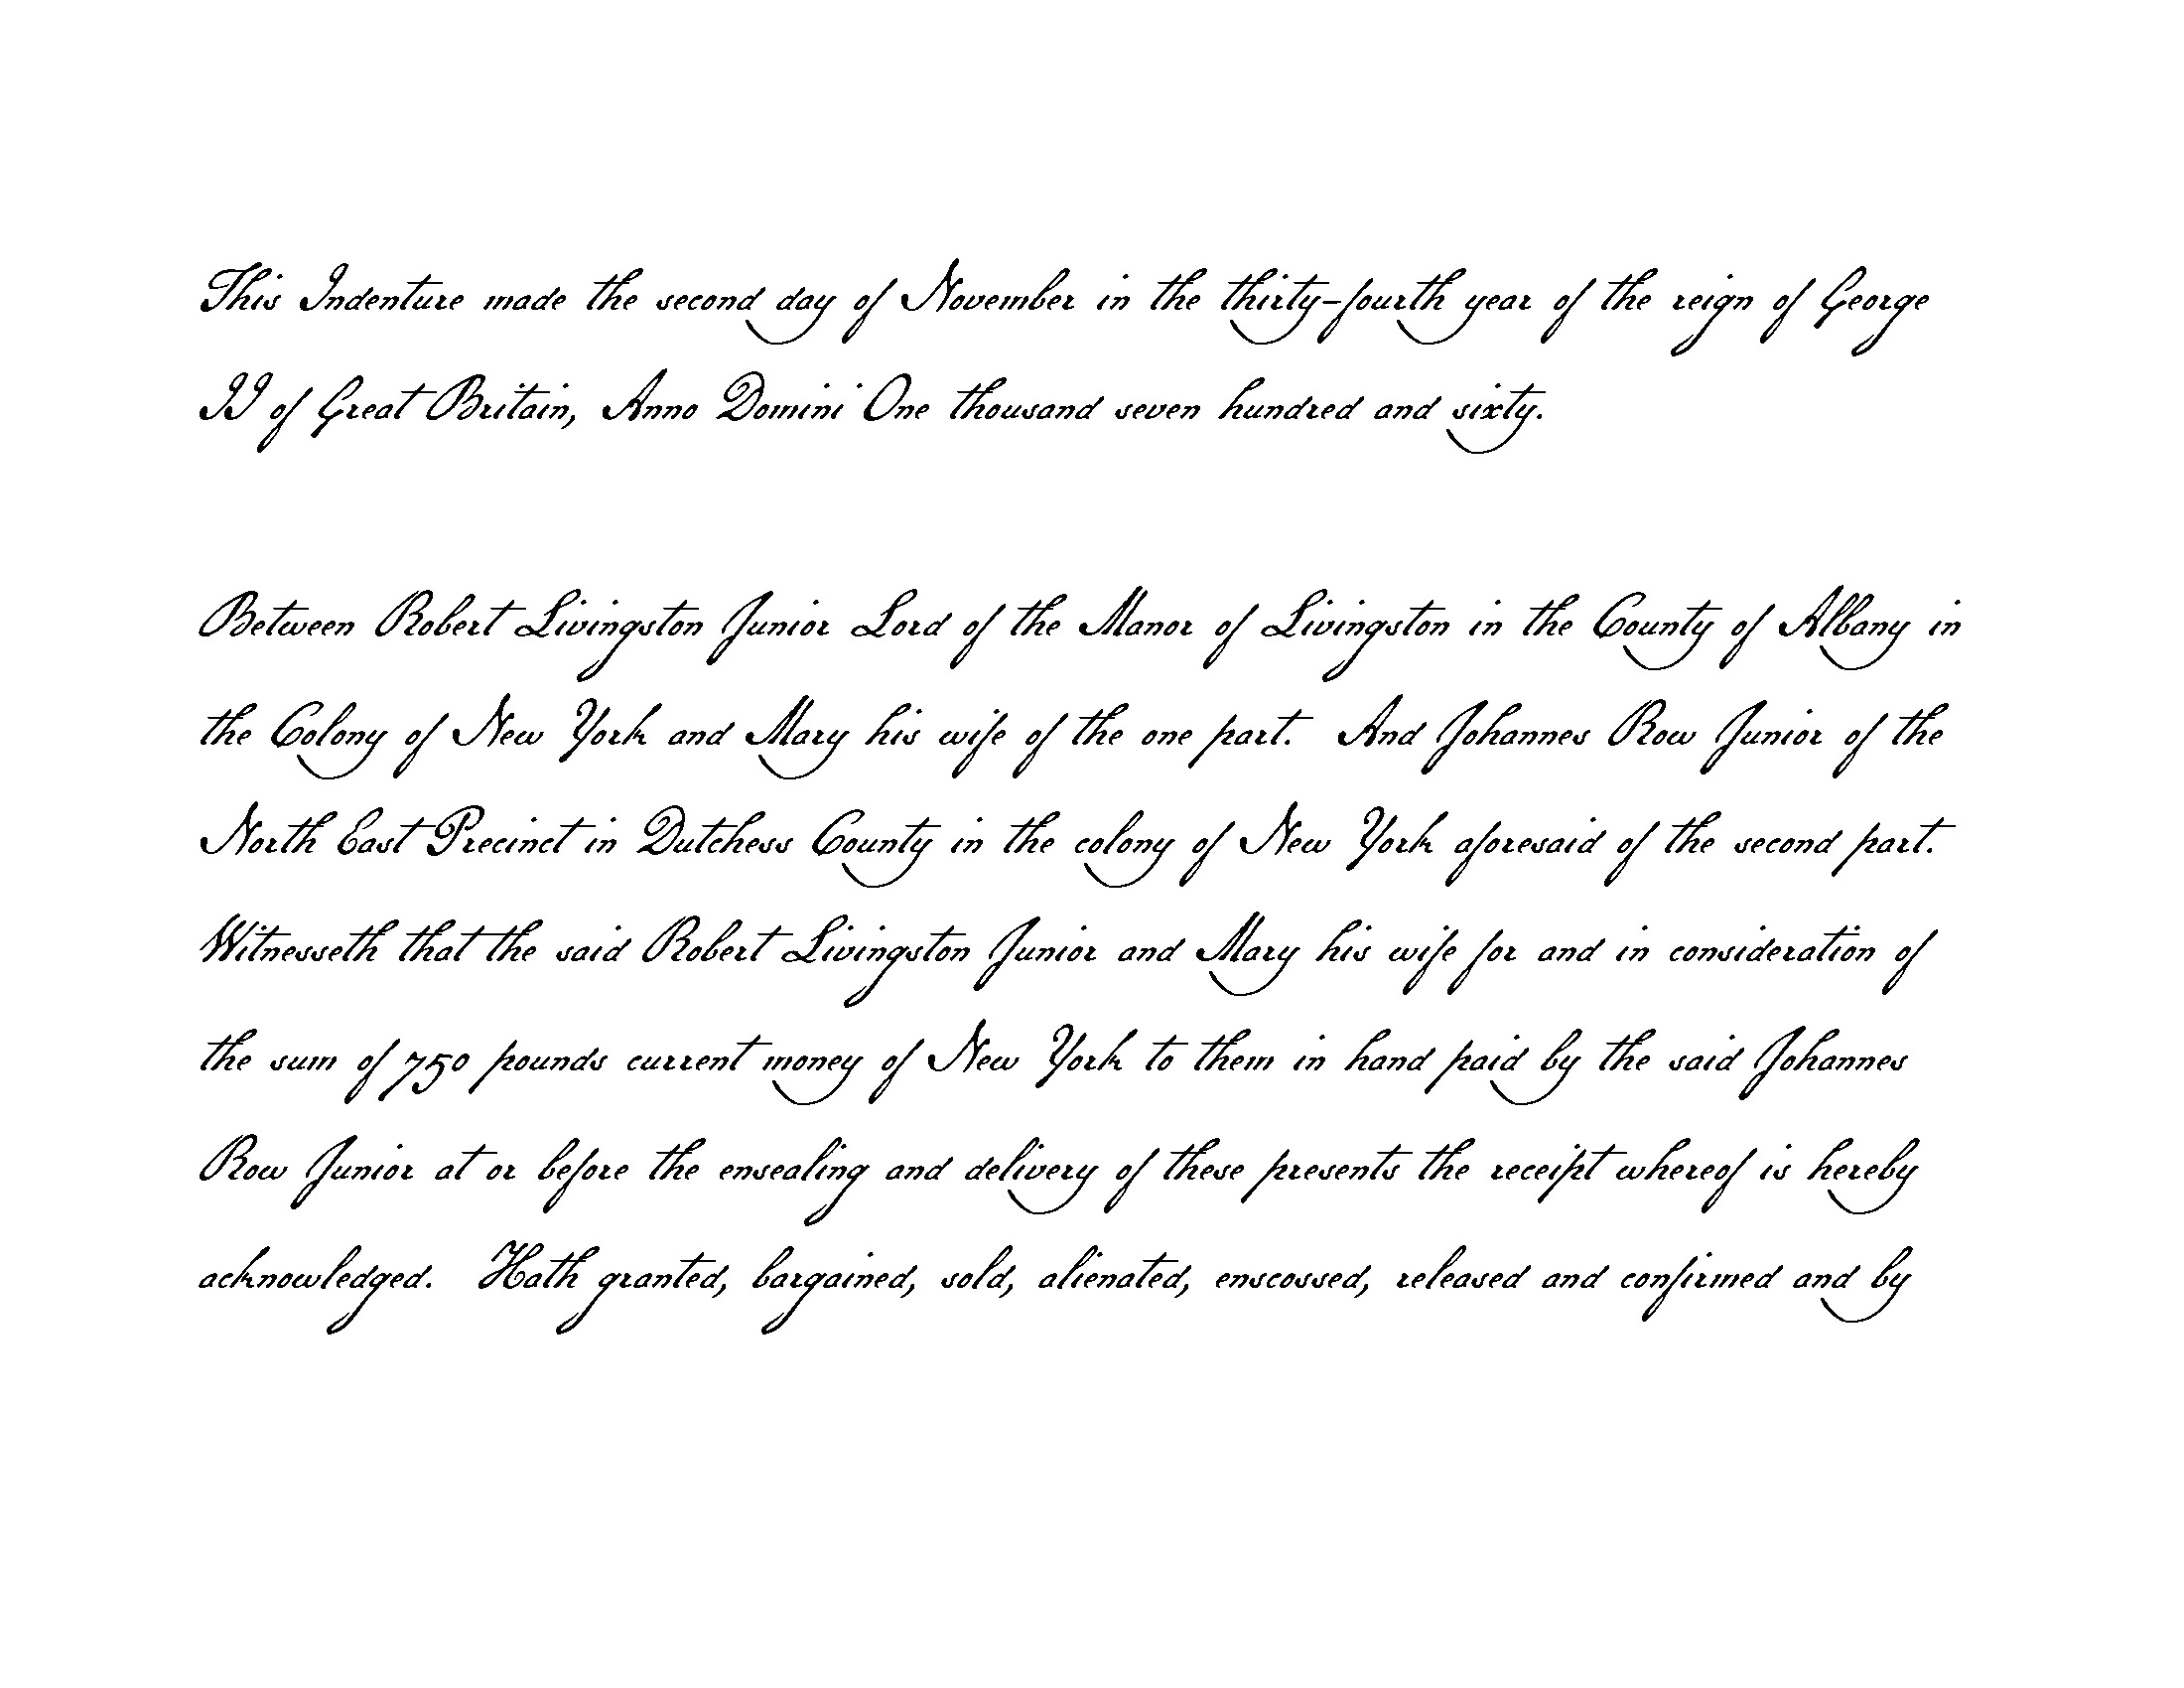 This Indenture made the second day of November in the thirty-fourth year of the reign of George
II of Great Britain, Anno Domini One thousand seven hundred and sixty.
Between Robert Livingston Junior Lord of the Manor of Livingston in the County of Albany in
the Colony of New York and Mary his wife of the one part. And Johannes Row Junior of the
North East Precinct in Dutchess County in the colony of New York aforesaid of the second part.
Witnesseth that the said Robert Livingston Junior and Mary his wife for and in consideration of
the sum of 750 pounds current money of New York to them in hand paid by the said Johannes
Row Junior at or before the ensealing and delivery of these presents the receipt whereof is hereby
acknowledged. Hath granted, bargained, sold, alienated, enscossed, released and confirmed and by